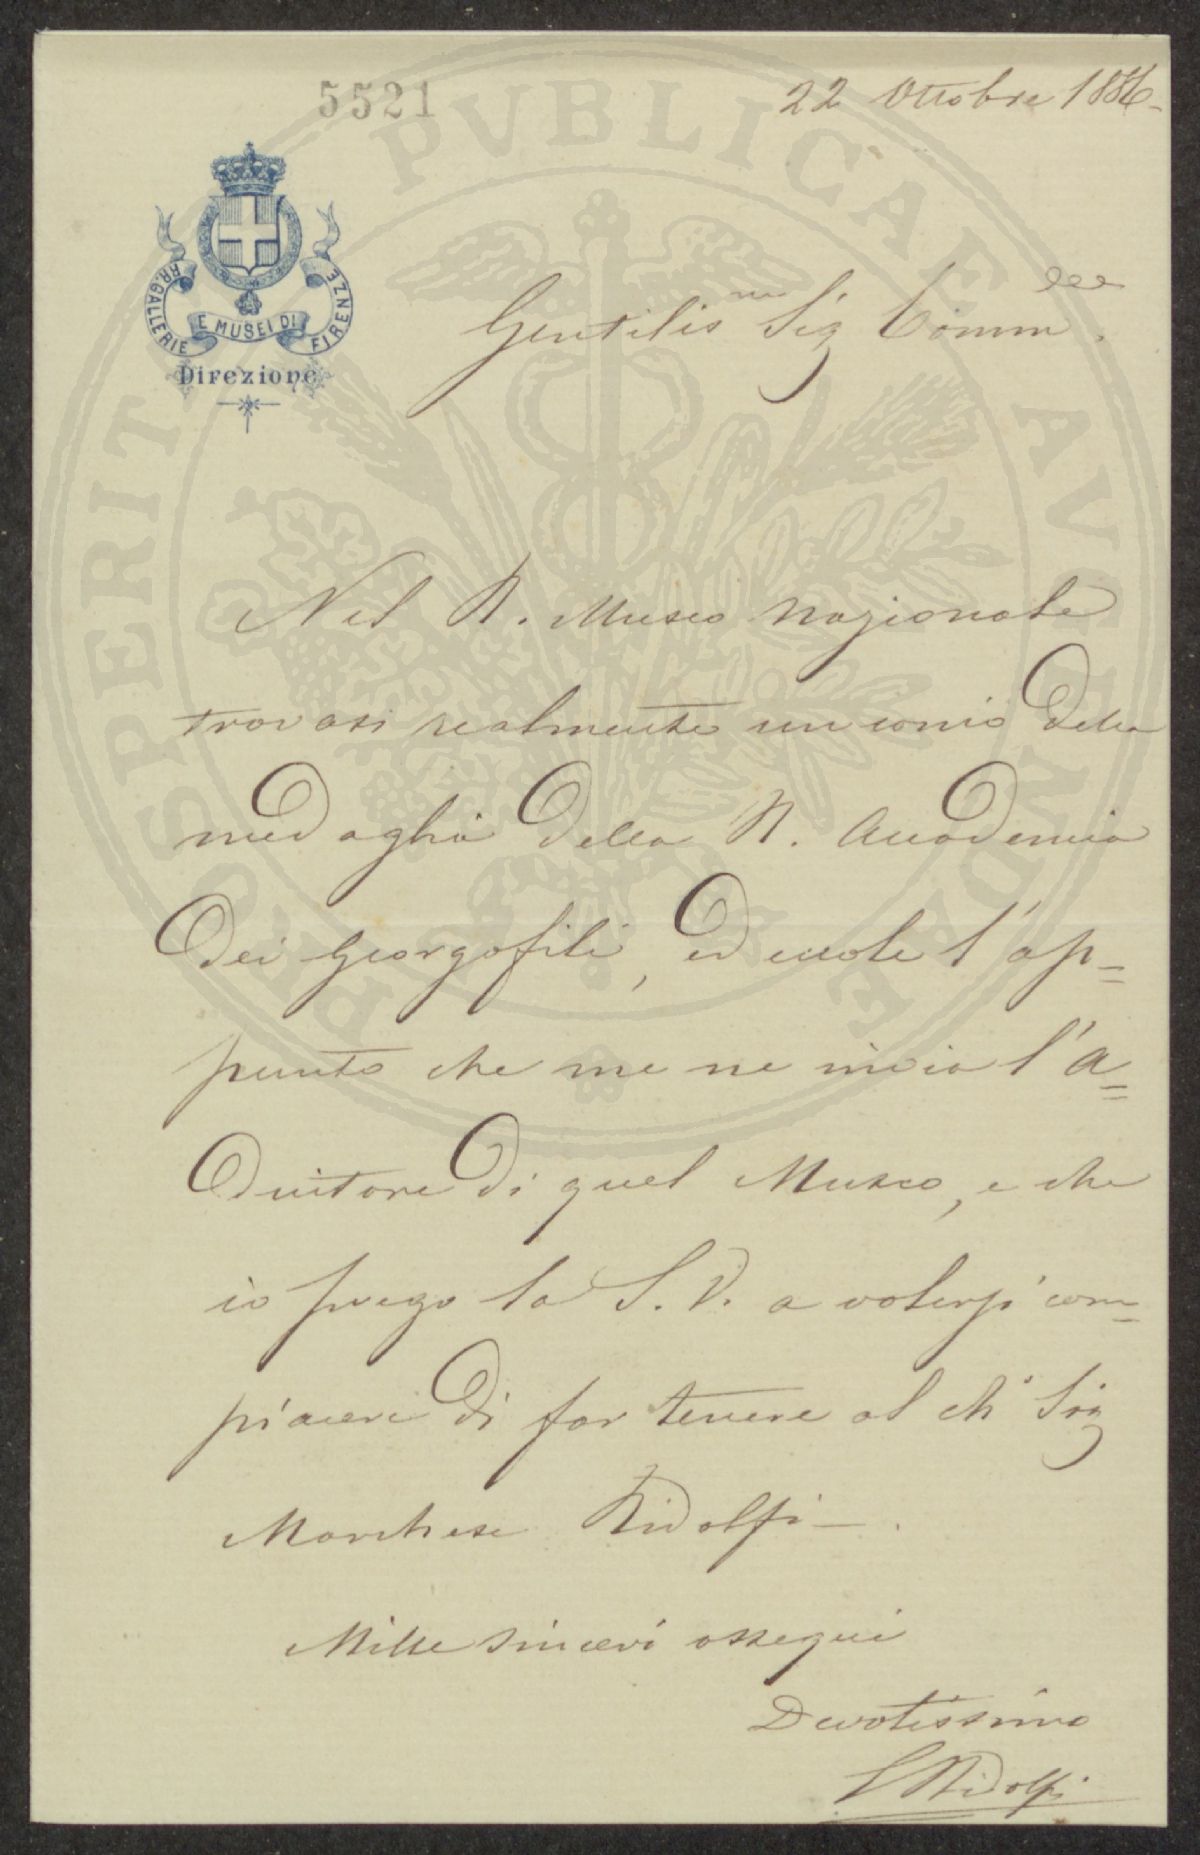 5521
22 Ottobre 1886
PROSPERITATI PVBLICAE AVGENDAE
RR. GALLERIE E MUSEI DI FIRENZE
Direzione
Gentilis.mo Sig Comm.
Nel R. Museo Nazionale
trovasi realmente un conio della
medaglia della R. Accademia
dei Georgofili, ed eccole l'ap=
punto che me ne invia l'a=
dditore di quel Museo, e che
io prego la S. V. a volersi com=
piacere di far tenere al ch° Sig
Marchese Ridolfi.
Mille sinceri ossequi
Devotissimo
Ridolfi